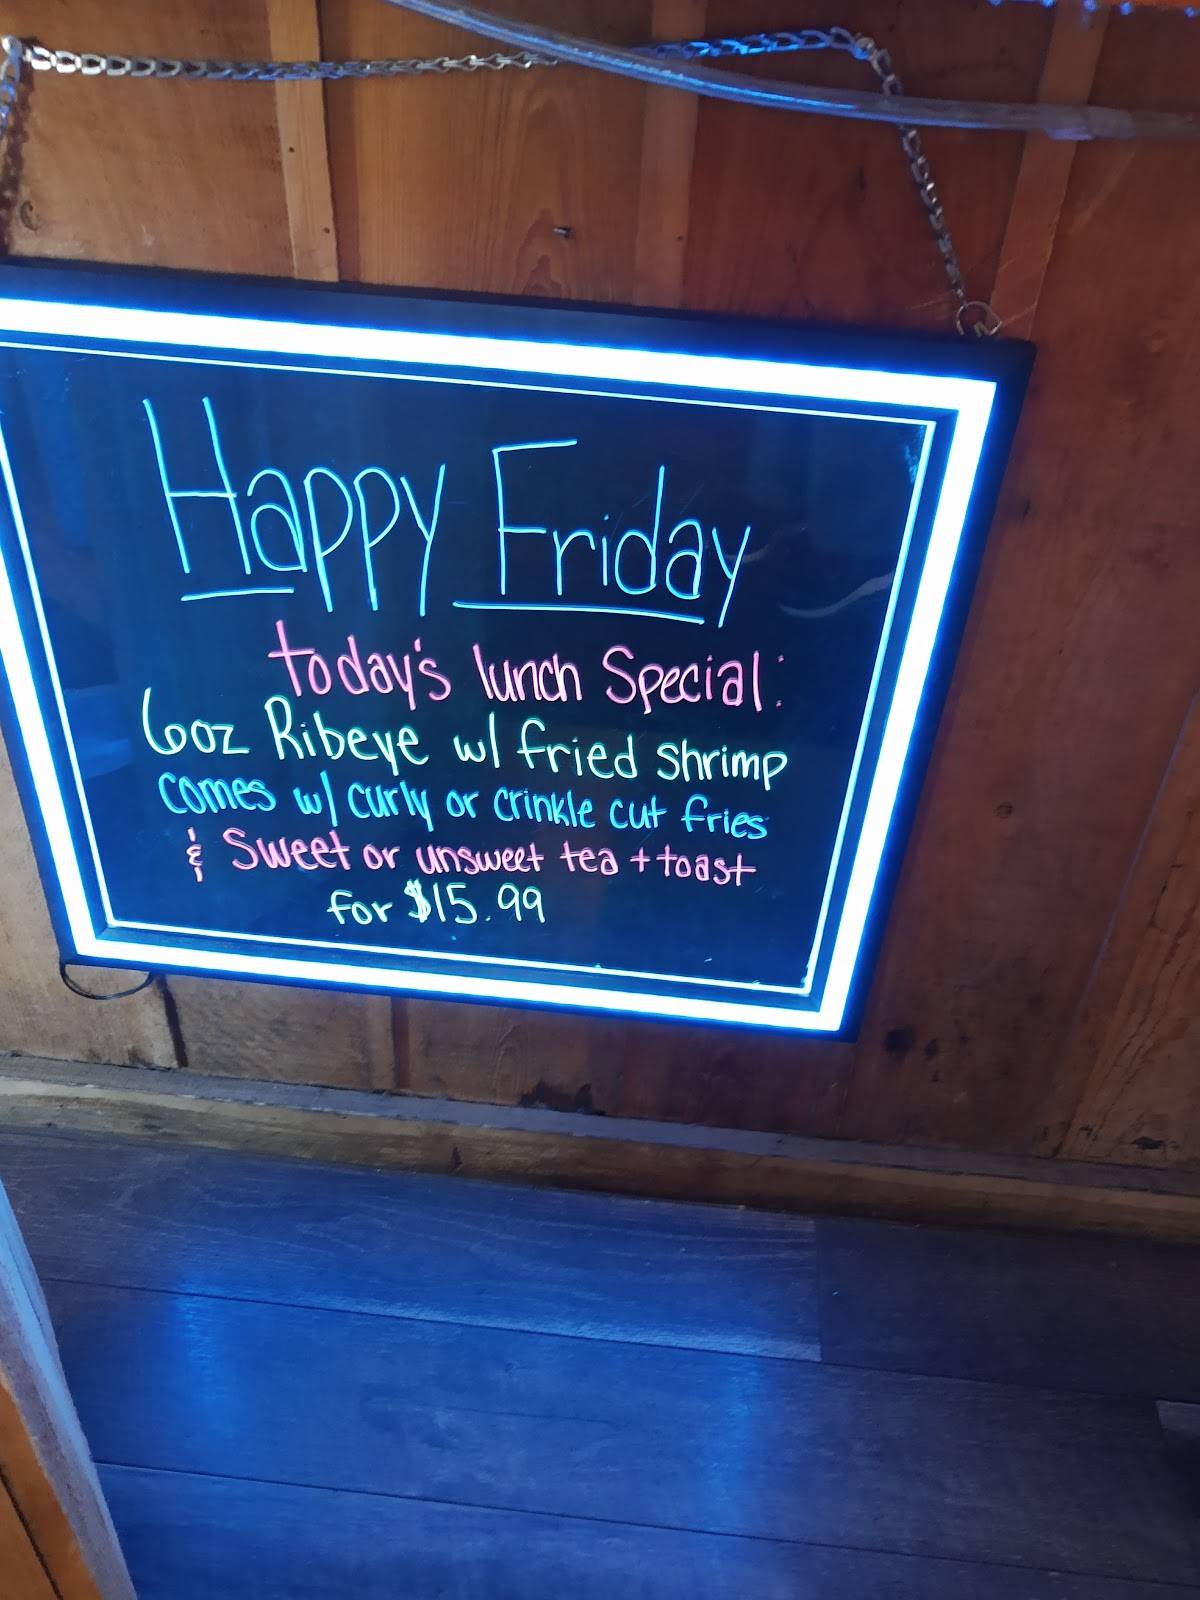 Happy Friday
today's lunch Special:
6oz Ribeye w/ fried shrimp
comes w/ curly or crinkle cut fries
& Sweet or unsweet tea + toast
for $15.99